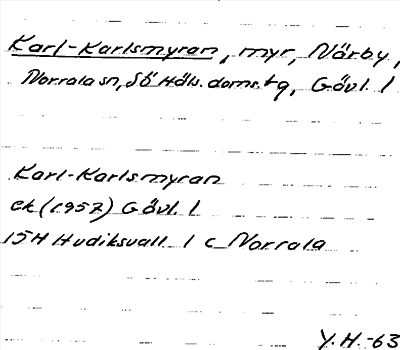 Karl-Karlsmyran, myr, Närby,
Norrala sn, Sö Häls. doms.tg, Gävl. l
Karl-Karlsmyran
ek (1957) Gävl. l
15H Hudiksvall 1 c Norrala
Y.H.-63